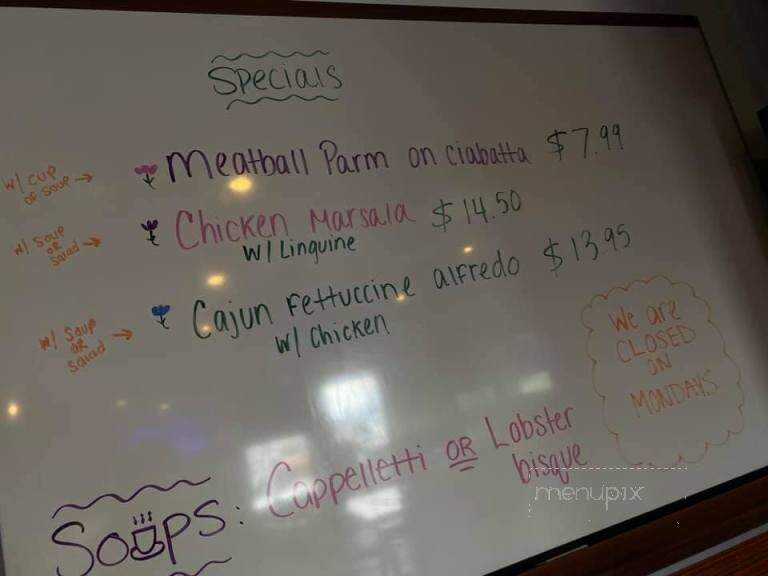 Specials
w/ cup of soup → Meatball Parm on ciabatta $7.99
w/ soup or salad → Chicken Marsala $14.50
w/ Linguine
w/ soup or salad → Cajun Fettuccine alfredo $13.95
w/ Chicken
We are
CLOSED
ON
MONDAYS
Soups: Cappelletti OR Lobster
bisque
menupix